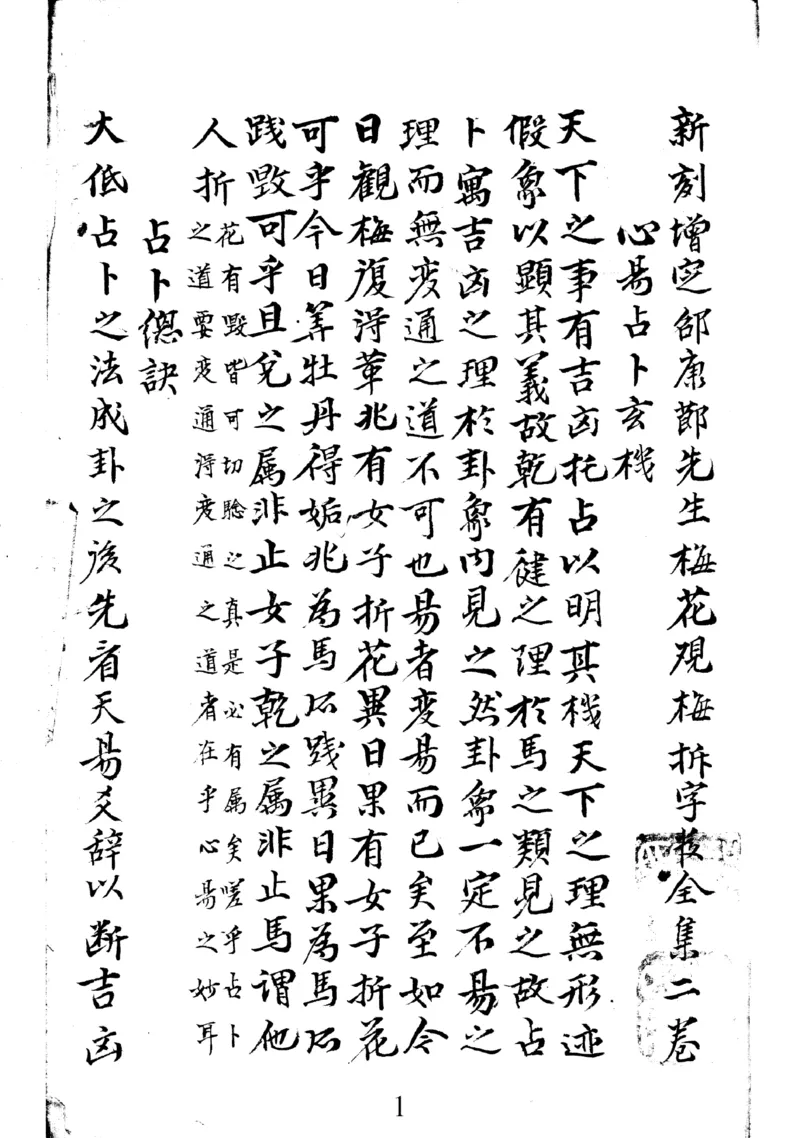 新刻增定邵康節先生梅花观梅拆字数全集二卷
心易占卜玄機
天下之事有吉凶托占以明其機天下之理無形迹
假象以顯其義故乾有健之理於馬之類見之故占
卜寓吉凶之理於卦象內見之然卦象一定不易之
理而無变通之道不可也易者变易而已矣至如今
日觀梅復淂革兆有女子折花異日果有女子折花
可乎今日筭牡丹得姤兆為馬所踐異日果為馬所
踐毀可乎且兌之属非止女子乾之属非止馬謂他
人折花有毀皆可切驗之真是必有属矣嗟乎占卜
之道要变通淂变通之道者在乎心易之妙耳
占卜總訣
大低占卜之法成卦之後先看天易爻辞以断吉凶
1